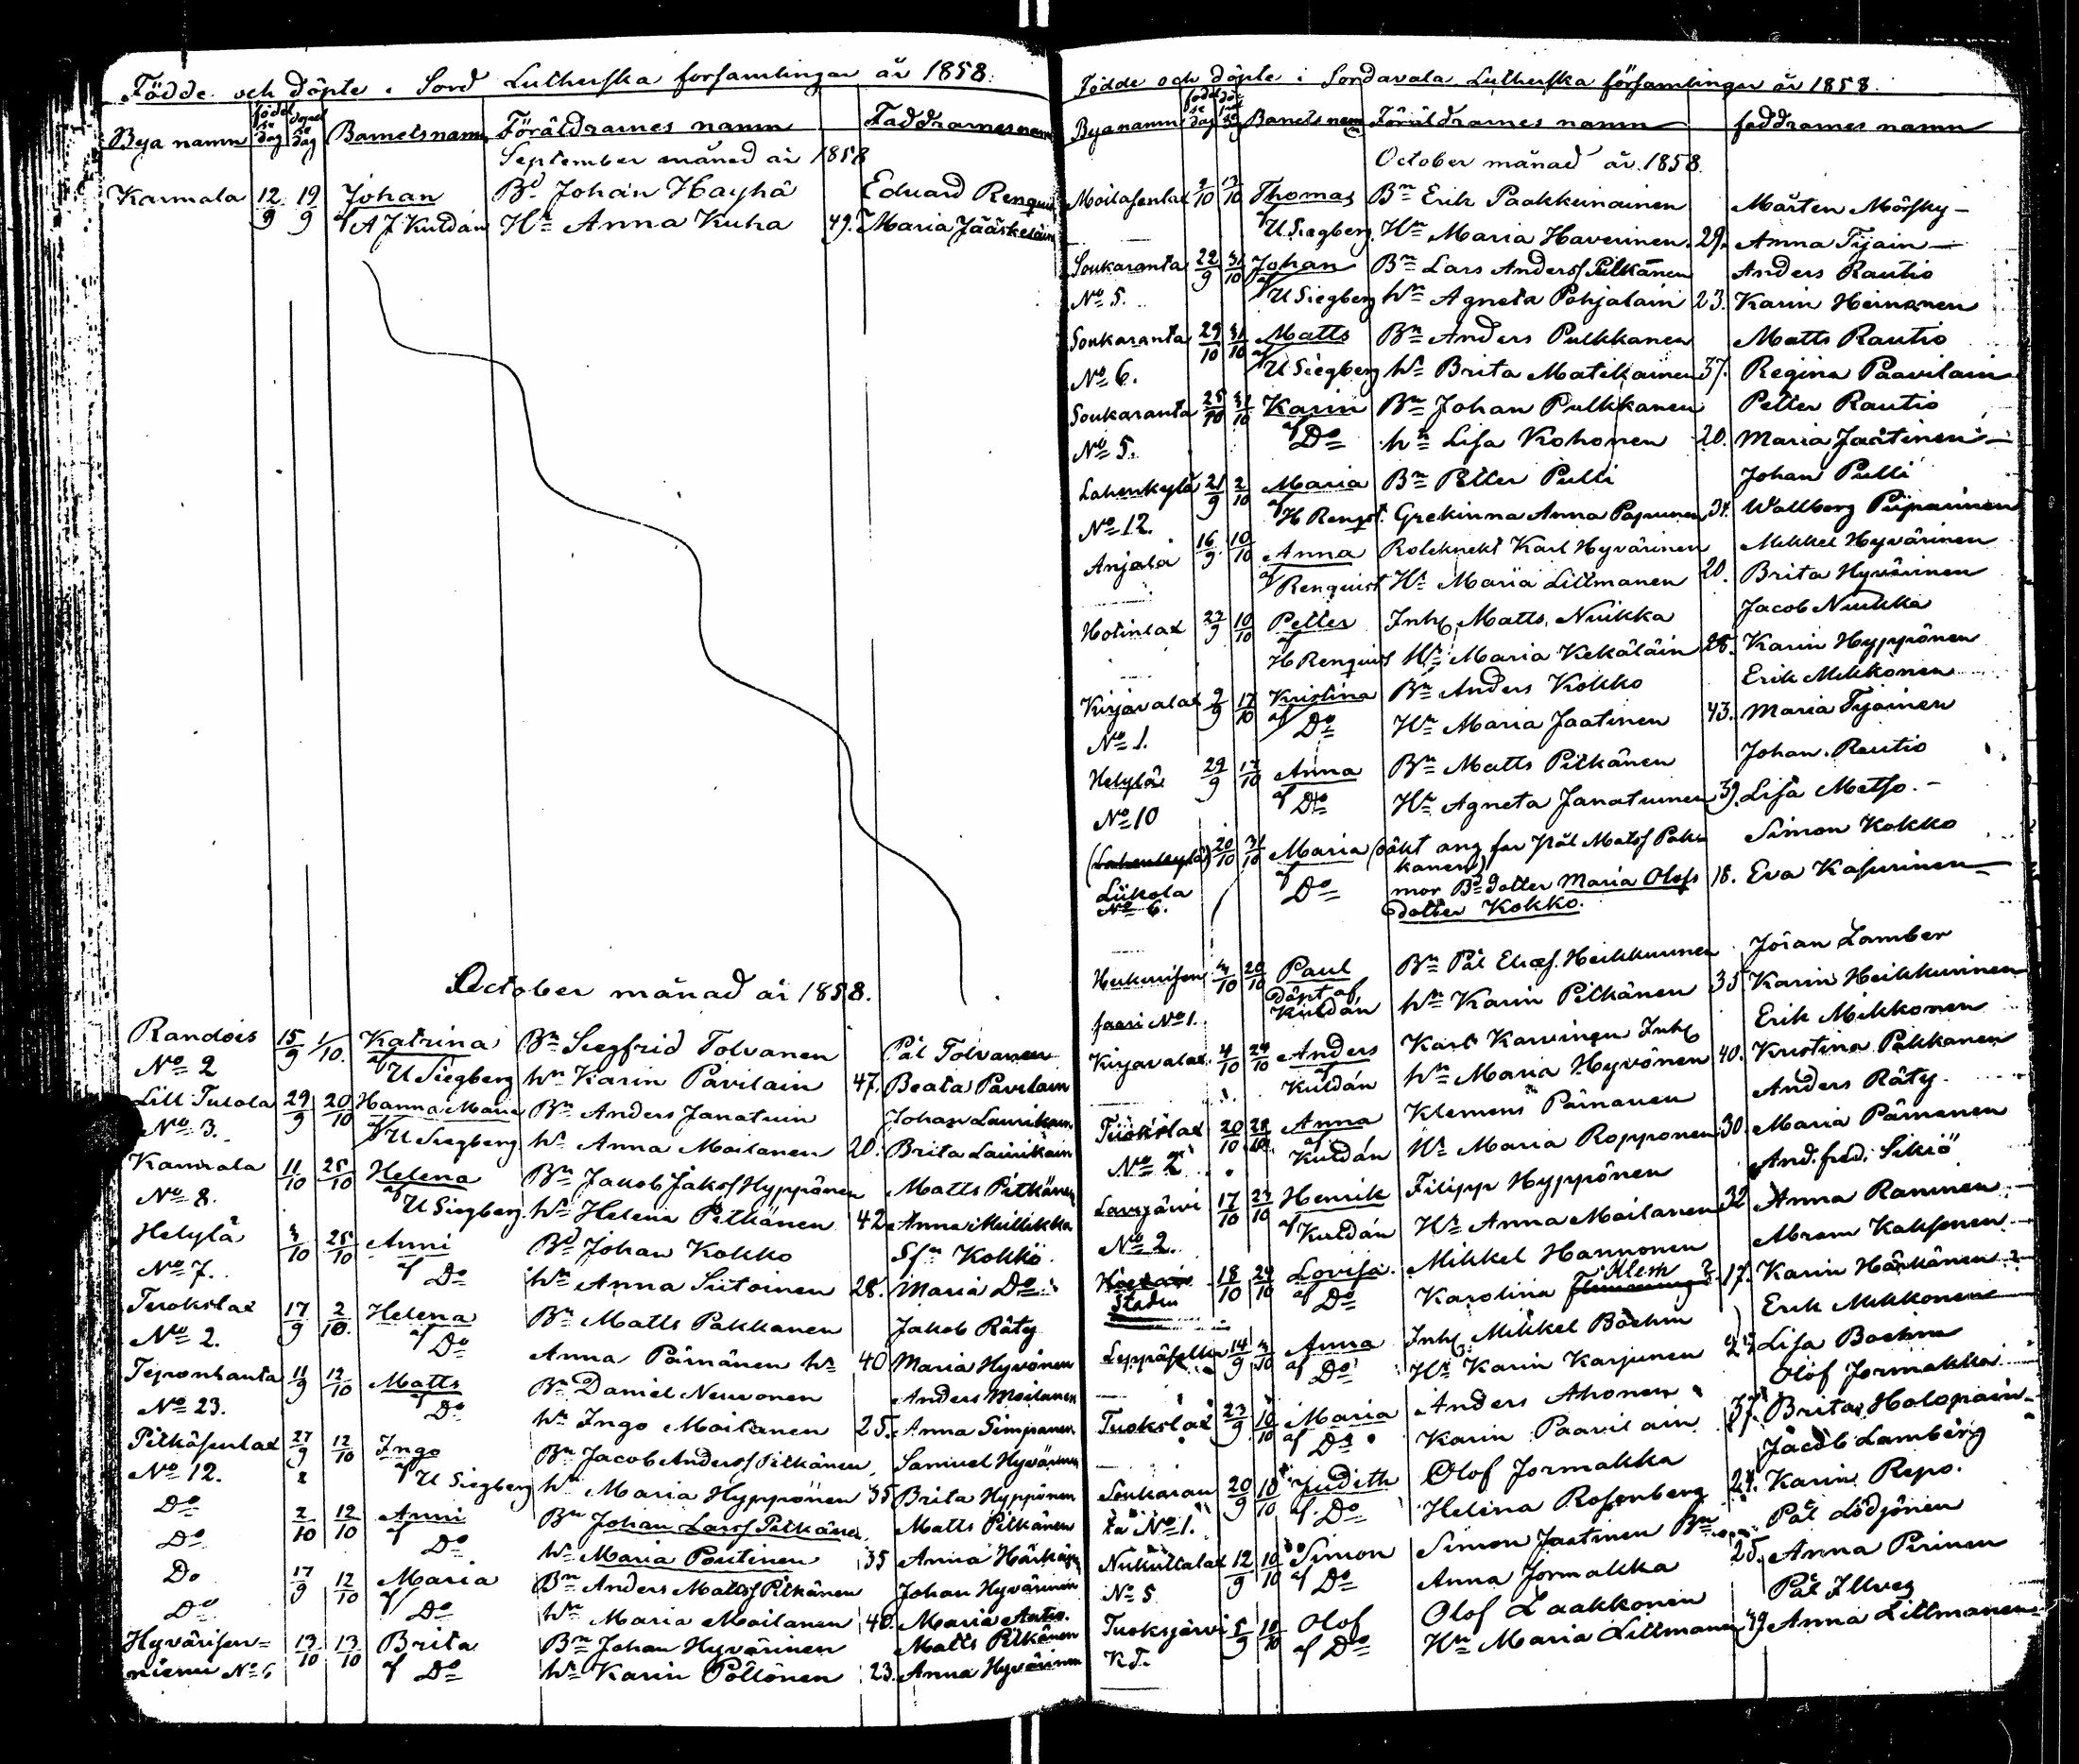 Födde och döpte i Sord Lutherska forsamlingar år 1858.
Bya namn födelse dag döpelse dag Barnets namn Föräldrarnes namn Faddrarnes namn
September månad år 1858
Karmala 12/9 19/9 Johan Bd Johan Hayhä Eduard Renquist
af A J Kuldan Hn Anna Kuha 49. Maria Jääskeläin
October månad år 1858.
Randois 15/9 1/10. Katrina Bn Siegfrid Tolvanen Pål Tolvanen
No 2 af U Siegberg hn Karin Pavilain 47. Beata Pavilain
Lill Tulola 29/9 20/10 Hanna Maria Bn Anders Janatuin Johan Laurikain
No 3. af U Siegberg hn Anna Moilanen 20. Brita Laurikain
Karmala 11/10 25/10 Helena Bn Jakob Jakosf Hyppönen Matts Pitkänen
No 8. af U Siegberg. hn Helena Pitkänen 42 Anna
Helylä 3/10 25/10 Anni Bd Johan Kokko Sfn Kokko
No 7. af Do hn Anna Siitoinen 28. Maria Do
Tuokslax 17/9 2/10. Helena Bn Matts Pakkanen Jakob Räty
No 2. af Do Anna Pärnänen hn 40 Maria Hyvönen
Teponhauta 11/9 12/10 Matts Bn Daniel Neuvonen Anders Moilanen
No 23. af Do hn Ingo Moilanen 25. Anna Simpanen
Pitkäsenlax 27/9 12/10 Ingo Bn Jacob Andersf Pitkänen Samuel Hyvärinen
No 12. af U Siegberg hn Maria Hyppönen 35 Brita Hyppönen
Do 2/10 12/10 Anni Bn Johan Larsf Pitkänen Matts Pitkänen
Do af Do hn Maria Poutinen 35 Anna Härkänen
Do 17/9 12/10 Maria Bn Anders Mattsf Pitkänen Johan Hyvärinen
Do af Do hn Maria Moilanen 40. Maria Autio.
Hyvärisen= 13/10 13/10 Brita Bn Johan Hyvärinen Matts Pitkänen
niemi No 6 af Do hn Karin Pöllönen 23. Anna Hyvärinen
Födde och döpte i Sordavala Lutherska församlingar år 1858.
Bya namn födelse dag döpelse dag Barnets namn Föräldrarnes namn faddrarnes namn
October månad år 1858.
Moilasenlax 2/10 13/10 Thomas Bn Erik Paakkunainen Mårten Mörsky
af U Siegberg. Hn Maria Haverinen. 29. Anna Tijain
Soukaranta 22/9 31/10 Johan Bn Lars Andersf Pitkänen Anders Rautio
No 5. af U Siegberg hn Agneta Pohjalain 23. Karin Heinonen
Soukaranta 29/10 31/10 Matts Bn Anders Pulkkanen Matts Rautio
No 6. af U Siegberg hn Brita Matikainen 37. Regina Paavilain
Soukaranta 25/10 31/10 Karin Bn Johan Pulkkanen Petter Rautio
No 5. af Do hn Lisa Kohonen 20. Maria Jaatinen
Lahenkylä 21/9 2/10 Maria Bn Petter Pulli Johan Pulli
No 12. af H Rengst. Grekinna Anna Papunen 34. Wallborg Piiparinen
Anjala 16/9 10/10 Anna Roteknekt Karl Hyvärinen Mikkel Hyvärinen
af Renquist Hn Maria Littmanen 20. Brita Hyvärinen
Hotinlax 22/9 10/10 Petter Inh Matts Nuikka Jacob Nuikka
af H Renquist Hn Maria Kekäläin 28. Karin Hyppönen
Kirjavalax 9/9 17/10 Kristina Bn Anders Kokko Erik Mikkonen
No 1. af Do Hn Maria Jaatinen 43. Maria Tijainen
Helylä 29/9 17/10 Anna Bn Matts Pitkänen Johan Rautio
No 10 af Do Hn Agneta Janatuinen 39. Lisa Metso.
(Lahenkylä) 20/10 31/10 Maria (oäkt ang far Pål Matsf Pak=
kanen) Simon Kokko
Liikola af Do mor Bd dotter Maria Olofs 18. Eva Kasurinen
No 6. dotter Kokko.
4/10 20/10 Paul Bn Pål Eliasf. Heikkurinen Jöran Lamber
saari No 1. Döpt af Kuldan hn Karin Pitkänen 35 Karin Heikkurinen
Kirjavalax 4/10 24/10 Anders Karl Karvinen Inh Erik Mikkonen
af Kuldan hn Maria Hyvönen 40. Kristina Pakkanen
Tuokslax 20/10 28/10 Anna Klemens Pärnanen Anders Räty.
No 2 af Kuldan Hn Maria Ropponen 30 Maria Pärnanen
Lavijärvi 17/10 23/10 Henrik Filipp Hyppönen And. fred. Sikiö
No 2. af Kuldan Hn Anna Moilanen 32 Anna Raninen
18/10 24/10 Lovisa. Mikkel Hannonen Abram Kahsonen
Staden af Do Karolina Klem 17. Karin Härkänen
Leppäselkä 14/9 3/10 Anna Inh Mikkel Boehm Erik Mikkonen
af Do Hn Karin Karjunen 27 Lisa Boehm
Tuokslax 23/9 10/10 Maria Anders Ahonen Olof Jormakka
af Do Karin Paavilain 37. Brita Holopain
Soukaran 20/9 10/10 Judith Olof Jormakka Jacob Lamberg
ta No 1. af Do Helena Rosenberg 24. Karin Repo.
Nukuttalax 12/9 10/10 Simon Simon Jaatinen Bn Pål Lödjönen
No 5 af Do Anna Jormakka 25. Anna Pirinen
Tuoksjärvi 5/9 10/10 Olof Olof Laakkonen Pål Ilves
K T. af Do Hn Maria Littmanen 39 Anna Littmanen